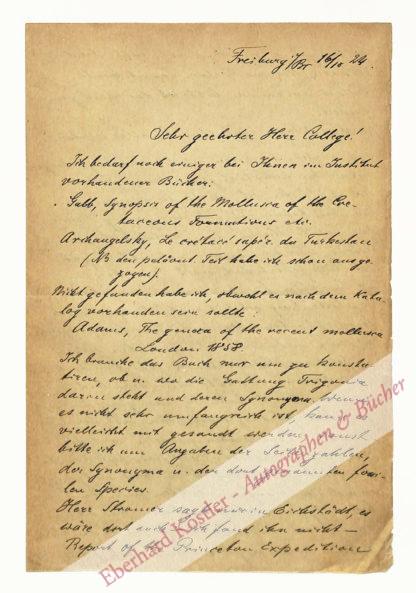 Freiburg i/Br 16/10 24.
Sehr geehrter Herr College!
Ich bedarf noch einiger bei Ihnen im Institut
vorhandener Bücher:
Gabb, Synopsis of the Mollusca of the Cre-
taceous Formations etc.
Archangelsky, Le crétacé supér. du Turkestan
(Nb den paläont Teil habe ich schon ausge-
zogen).
Nicht gefunden habe ich, obwohl es nach dem Kata-
log vorhanden sein sollte:
Adams, The genera of the recent mollusca
London 1858
Ich brauche das Buch nur um zu konsta-
tiren, ob u. wo die Gattung Trigonia
darin steht und deren Synonyma. Wenn
es nicht sehr umfangreich ist, kann es
vielleicht mit gesandt werden, sonst
bitte ich um Angaben der Seitenzahlen,
der Synonyma u. der dort genannten fossi-
len Species.
Herr Stromer sagte mir in Eichstädt, es
wäre dort auch fand ihn nicht —
Report of the Princeton Expedition
Eberhard Köstler - Autographen & Bücher